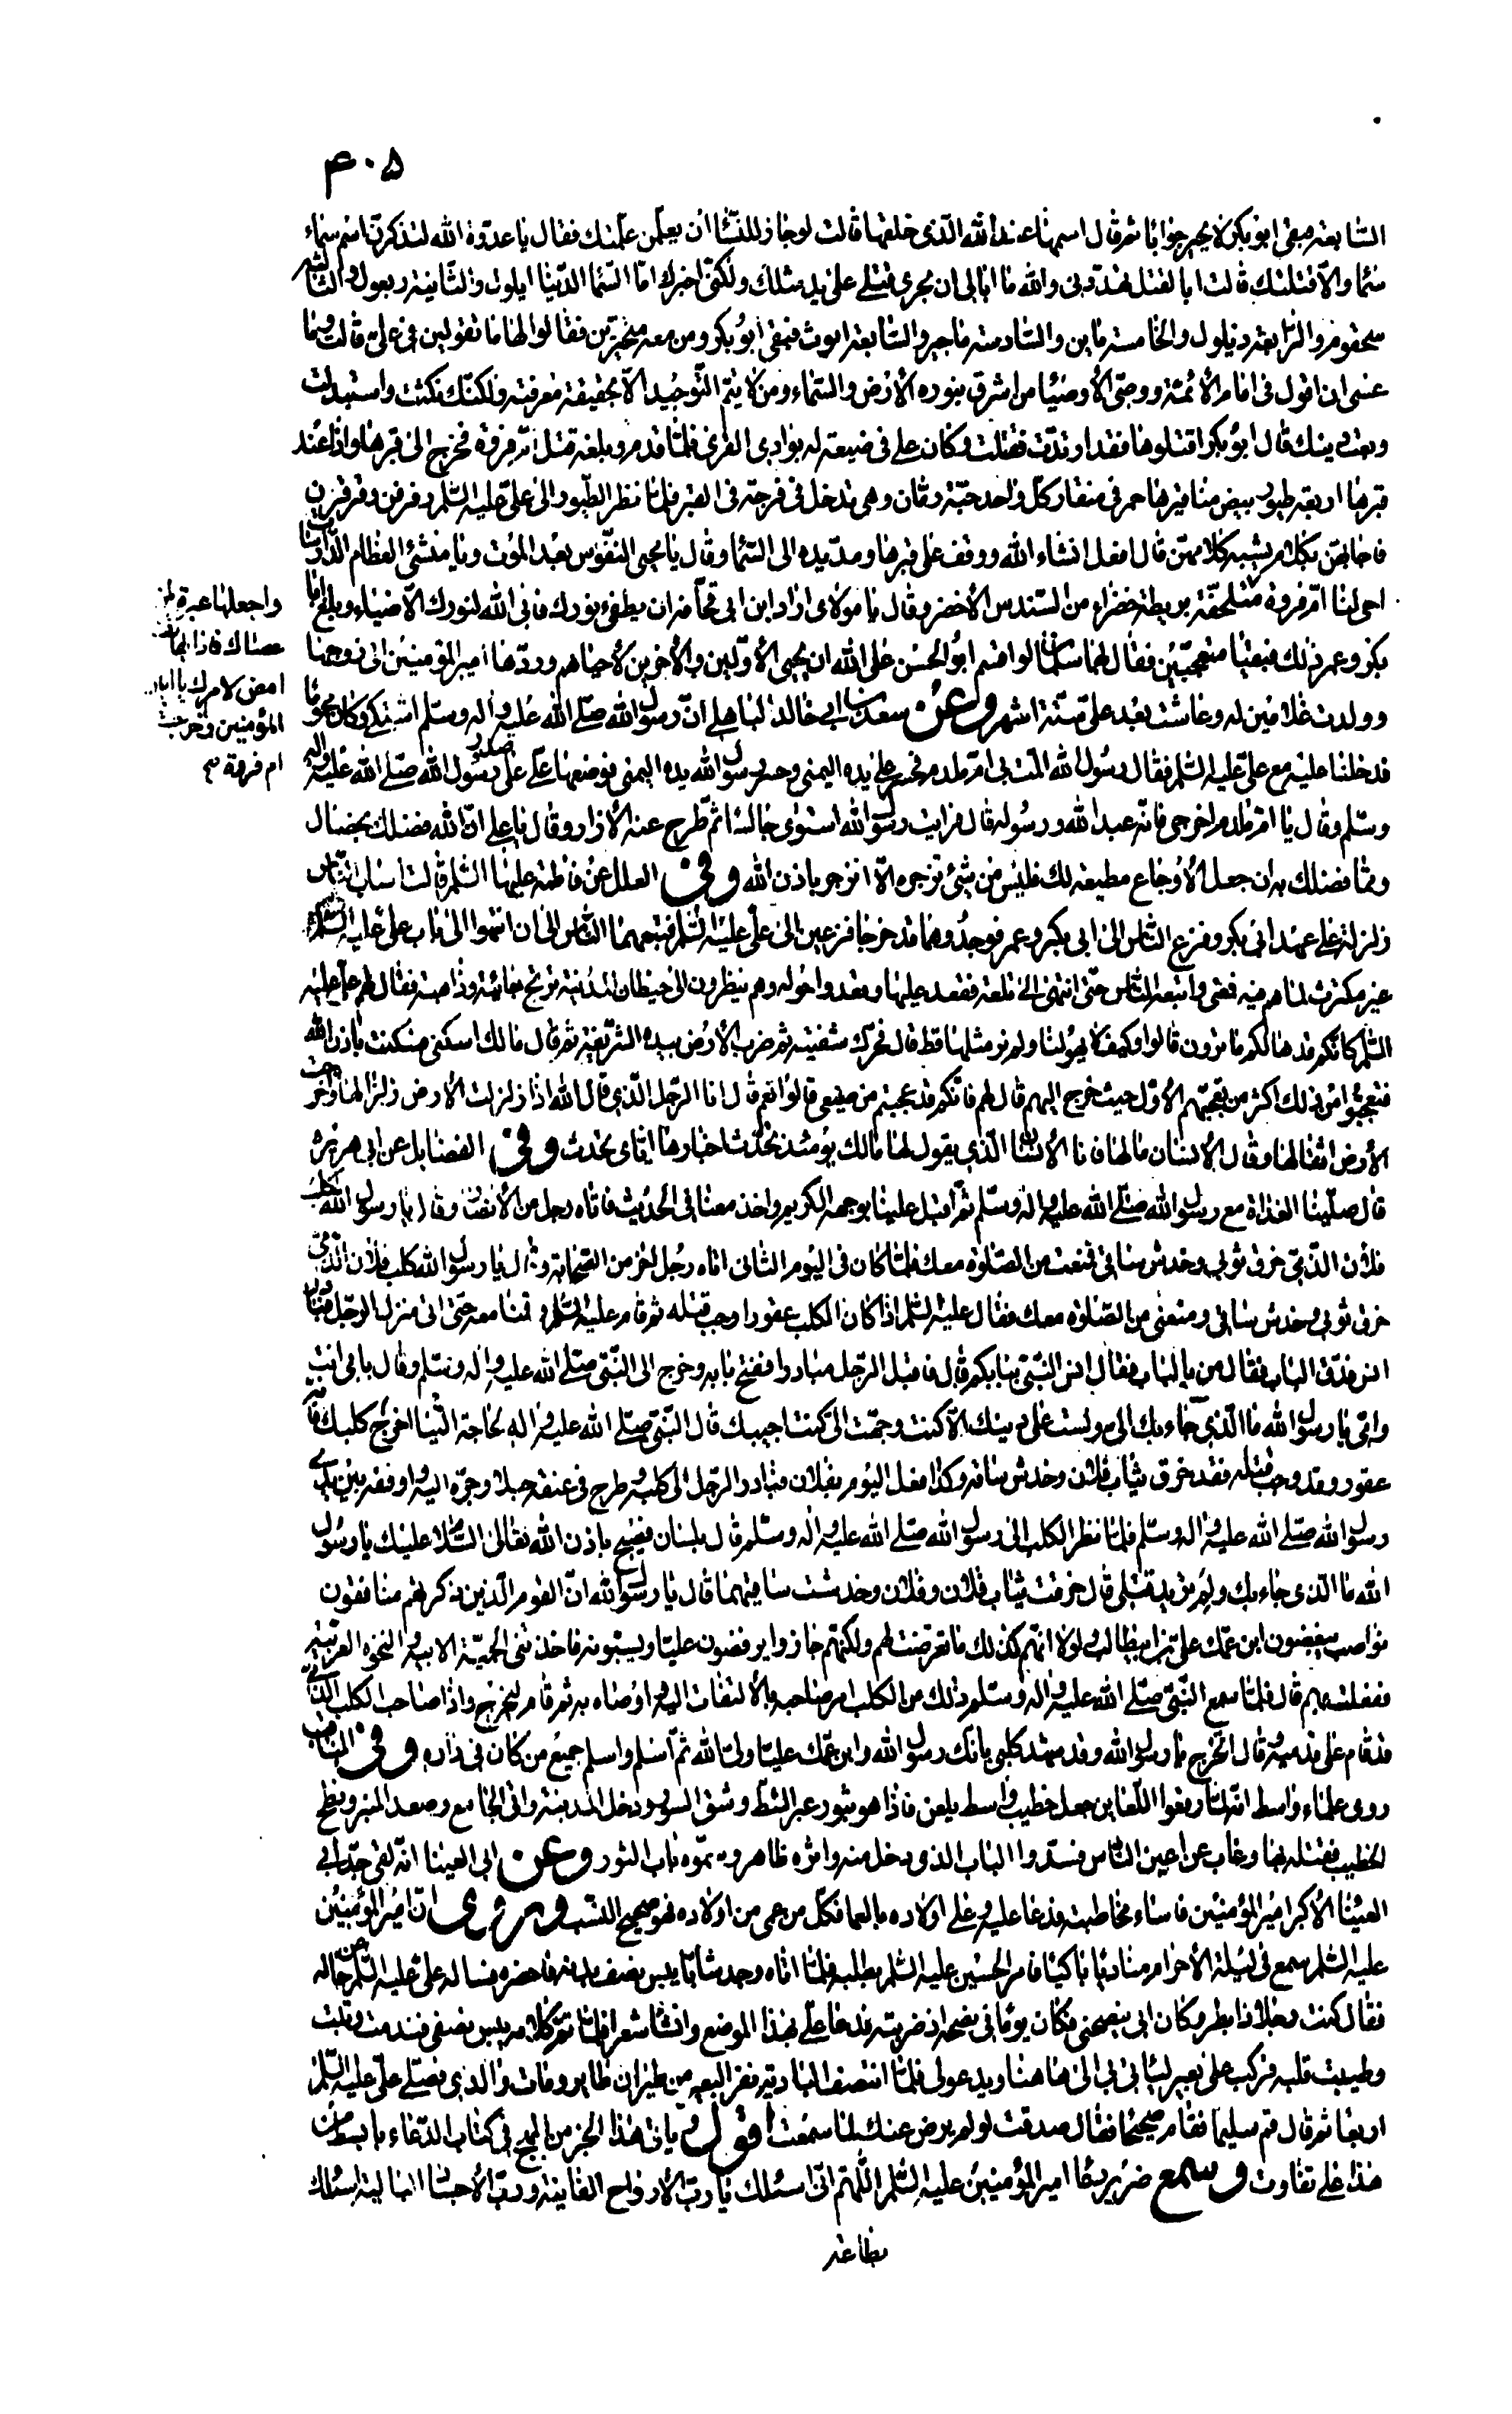 ۴۰۵
السابعة فبقى ابو بكر لا يحير جوابا ثم قال اسمها عند الله الذى خلقها قالت لو جاز للنساء ان يعلمن علمتك فقال يا عدوة الله لتذكرن اسم سماء
سماء والا قتلتك قالت ابالقتل تهددنى والله ما ابالى ان يجرى قتلى على يد مثلك ولكنى اخبرك اما السماء الدنيا ايلول والثانية ربعول والثالثة
سحقوم والرابعة ذيلول والخامسة ماين والسادسة ماجير والسابعة ايوث فبقى ابو بكر ومن معه متحيرين فقالوا لها ما تقولين فى على قالت وما
عسى ان اقول فى امام الأئمة ووصى الأوصياء من اشرق بنوره الأرض والسماء ومن لا يتم التوحيد الا بحقيقة معرفته ولكنك نكثت واستبدلت
وبعت دينك قال ابو بكر اقتلوها فقد ارتدت فقتلت وكان على فى ضيعة له بوادى القرى فلما قدم وبلغه قتل ام فروة فخرج الى قبرها واذا عند
قبرها اربعة طيور بيض مناقيرها حمر فى منقار كل واحد حبة رمان وهى تدخل فى فرجة فى القبر فلما نظر الطيور الى على عليه السلم رفرفن وقرقرن
فاجابهن بكلام يشبه كلامهن قال افعل انشاء الله ووقف على قبرها ومد يده الى السماء وقال يا محيى النفوس بعد الموت ويا منشئ العظام الدارسات
احى لنا ام فروة متلحفة بريطة خضراء من السندس الأخضر وقال يا مولاى اراد ابن ابى قحافة ان يطفئ نورك فابى الله لنورك الا ضياء وبلغ ابا
واجعلها عبرة لمن
عصاك فاذا بهاتف
امض لامرك يا امير
المؤمنين وخرجت
ام فروة صح
بكر وعمر ذلك فبقيا متعجبين فقال لهما سلمان لو اقسم ابو الحسن على الله ان يحيى الأولين والأخرين لأحياهم وردها امير المؤمنين الى زوجها
وولدت غلامين له وعاشت بعد على ستة اشهر وعن سعد بن ابى خالد الباهلى ان رسول الله صلى الله عليه واله وسلم اشتكى وكان محموما
فدخلنا عليه مع على عليه السلم فقال رسول الله المت بى ام ملدم فحسر على يده اليمنى وحسر رسول الله يده اليمنى فوضعها على على صدر رسول الله صلى الله عليه واله
وسلم وقال يا ام ملدم اخرجى فانه عبد الله ورسوله قال فرايت رسول الله استوى جالسا ثم طرح عنه الأزار وقال يا على ان الله فضلك بخصال
ومما فضلك به ان جعل الأوجاع مطيعة لك فليس من شئ تزجره الا انزجر باذن الله وفى العلل عن فاطمة عليها السلم قالت اصاب الناس
زلزلة على عهد ابى بكر وفزع الناس الى ابى بكر وعمر فوجدوهما قد خرجا فزعين الى على عليه السلم فتبعهما الناس الى ان انتهوا الى باب على عليه السلم
غير مكترث لما هم فيه فمضى واتبعه الناس حتى انتهى الى تلعة فقعد عليها وقعدوا حوله وهم ينظرون الى حيطان المدينة ترتج جائية وذاهبة فقال لهم على عليه
السلم كانكم قد هالكم ما ترون قالوا وكيف لا يهولنا ولم نر مثلها قط قال فحرك شفتيه ثم ضرب الأرض بيده الشريفة ثم قال مالك اسكنى فسكنت باذن الله
فتعجبوا من ذلك اكثر من تعجبهم الأول حيث خرج اليهم قال لهم فانكم قد عجبتم من صنيعى قالوا نعم قال انا الرجل الذى قال الله اذا زلزلت الأرض زلزالها واخرجت
الأرض اثقالها وقال الأنسان مالها فانا الأنسان الذى يقول لها مالك يومئذ تحدث اخبارها اياى تحدث وفى الفضايل عن ابى هريرة
قال صلينا الغداة مع رسول الله صلى الله عليه واله وسلم ثم اقبل علينا بوجهه الكريم واخذ معنا فى الحديث فاتاه رجل من الأنصار وقال يا رسول الله كلب
فلان الذمى خرق ثوبى وخدش ساقى فمنعت من الصلوة معك فلما كان فى اليوم الثانى اتاه رجل اخر من الصحابة وقال يا رسول الله كلب فلان الذمى
خرق ثوبى وخدش ساقى ومنعنى من الصلوة معك فقال عليه السلم اذا كان الكلب عقورا وجب قتله ثم قام عليه السلم وقمنا معه حتى اتى منزل الرجل فبادر
انس فدق الباب فقال من بالباب فقال انس النبى ببابكم قال فاقبل الرجل مبادرا ففتح بابه وخرج الى النبى صلى الله عليه واله وسلم وقال بابى انت
وامى يا رسول الله ما الذى جاء بك الى ولست على دينك الا كنت وجهت الى كنت اجيبك قال النبى صلى الله عليه واله لحاجة الينا اخرج كلبك فانه
عقور وقد وجب قتله فقد خرق ثياب فلان وخدش ساقه وكذا فعل اليوم بفلان فبادر الرجل الى كلبه وطرح فى عنقه حبلا وجره اليه واوقفه بين يدى
رسول الله صلى الله عليه واله وسلم فلما نظر الكلب الى رسول الله صلى الله عليه واله وسلم قال بلسان فصيح باذن الله تعالى السلام عليك يا رسول
الله ما الذى جاء بك ولم تريد قتلى قال خرقت ثياب فلان وفلان وخدشت ساقيهما قال يا رسول الله ان القوم الذين ذكرتهم منافقون
نواصب يبغضون ابن عمك على بن ابيطالب ولولا انهم كذلك ما تعرضت لهم ولكنهم جازوا يرفضون عليا ويسبونه فاخذتنى الحمية الابية والنخوة العربية
ففعلت بهم قال فلما سمع النبى صلى الله عليه واله وسلم ذلك من الكلب امر صاحبه بالألتفات اليه واوصاه به ثم قام ليخرج واذا صاحب الكلب الذمى
قد قام على قدميه وقال اتخرج يا رسول الله وقد شهد كلبى بانك رسول الله وابن عمك عليا ولى الله ثم اسلم واسلم جميع من كان فى داره وفى المناقب
روى علماء واسط انه لما رفعوا اللعاين جعل خطيب واسط يلعن فاذا هو بثور عبر الشط وشق السور ودخل المدينة واتى الجامع وصعد المنبر ونطح
الخطيب فقتله بها وغاب عن اعين الناس فسدوا الباب الذى دخل منه واثره ظاهر وسموه باب الثور وعن ابى العينا انه لقى جد ابى
العينا الأكبر امير المؤمنين فاساء مخاطبته فدعا عليه وعلى اولاده بالعما فكل من عمى من اولاده فهو صحيح النسب وروى ان امير المؤمنين
عليه السلم سمع فى ليلة الأحرام مناديا باكيا فامر الحسين عليه السلم بطلبه فلما اتاه وجد شابا يبس نصف بدنه فاحضره فساله على عليه السلم عن حاله
فقال كنت رجلا ذا بطر وكان ابى ينصحنى فكان يوما فى نصحه اذ ضربته فدعا على بهذا الموضع وانشا شعرا فلما تم كلامه يبس نصفى فندمت وتبت
وطيبت قلبه فركب على بعير لياتى بى الى هاهنا ويدعو لى فلما انتصف البادية نفر البعير من طيران طاير ومات والدى فصلى على عليه السلم
اربعا ثم قال قم سليما فقام صحيحا فقال صدقت لو لم يرض عنك لما سمعت اقول وياتى هذا الخبر من المهج فى كتاب الدعاء بابسط من
هذا على تفاوت وسمع ضرير دعا امير المؤمنين عليه السلم اللهم انى اسئلك يا رب الأرواح الفانية ورب الأجساد البالية اسئلك
بطاعة